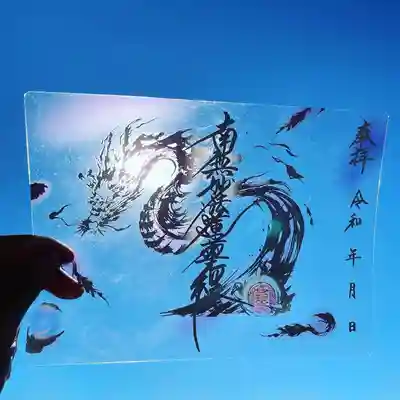 奉拝 令和 年 月 日
南無妙法蓮華經